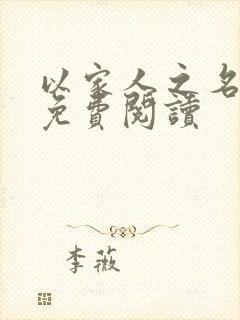 以家人之名
免費閱讀
李薇